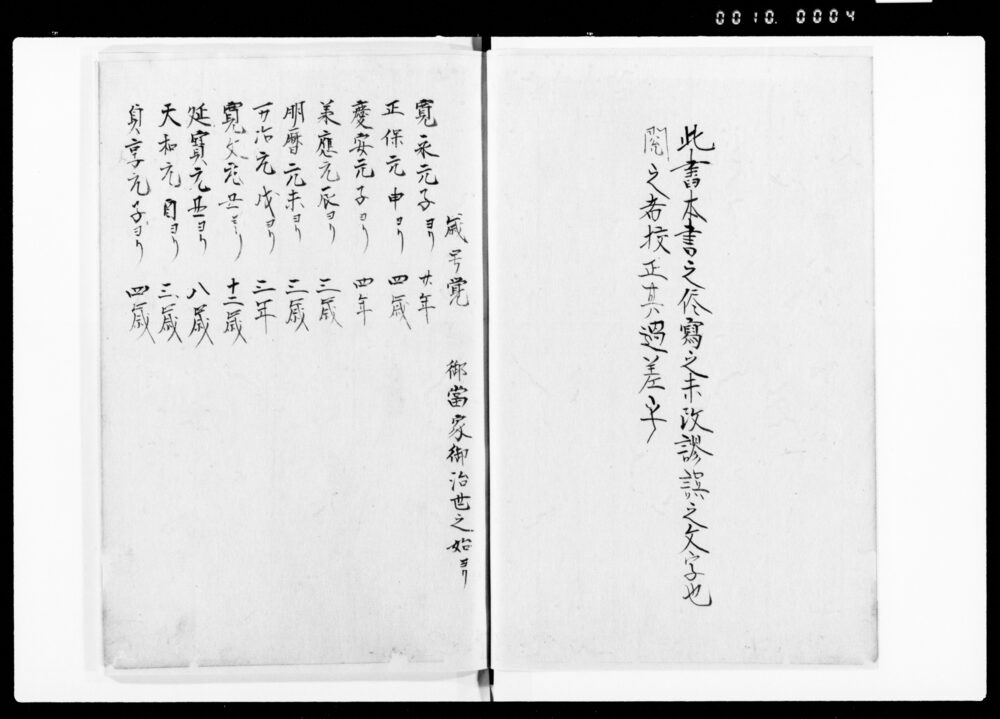 0010. 0004
此書本書之侭寫之未改謬誤之文字也
閲之者挍正其過差乎
歳号覚　御當家御治世之始ヨリ
寛永元子ヨリ　廿年
正保元申ヨリ　四歳
慶安元子ヨリ　四年
承應元辰ヨリ　三歳
明暦元未ヨリ　三歳
万治元戌ヨリ　三年
寛文元丑ヨリ　十二歳
延寶元丑ヨリ　八歳
天和元酉ヨリ　三歳
貞享元子ヨリ　四歳